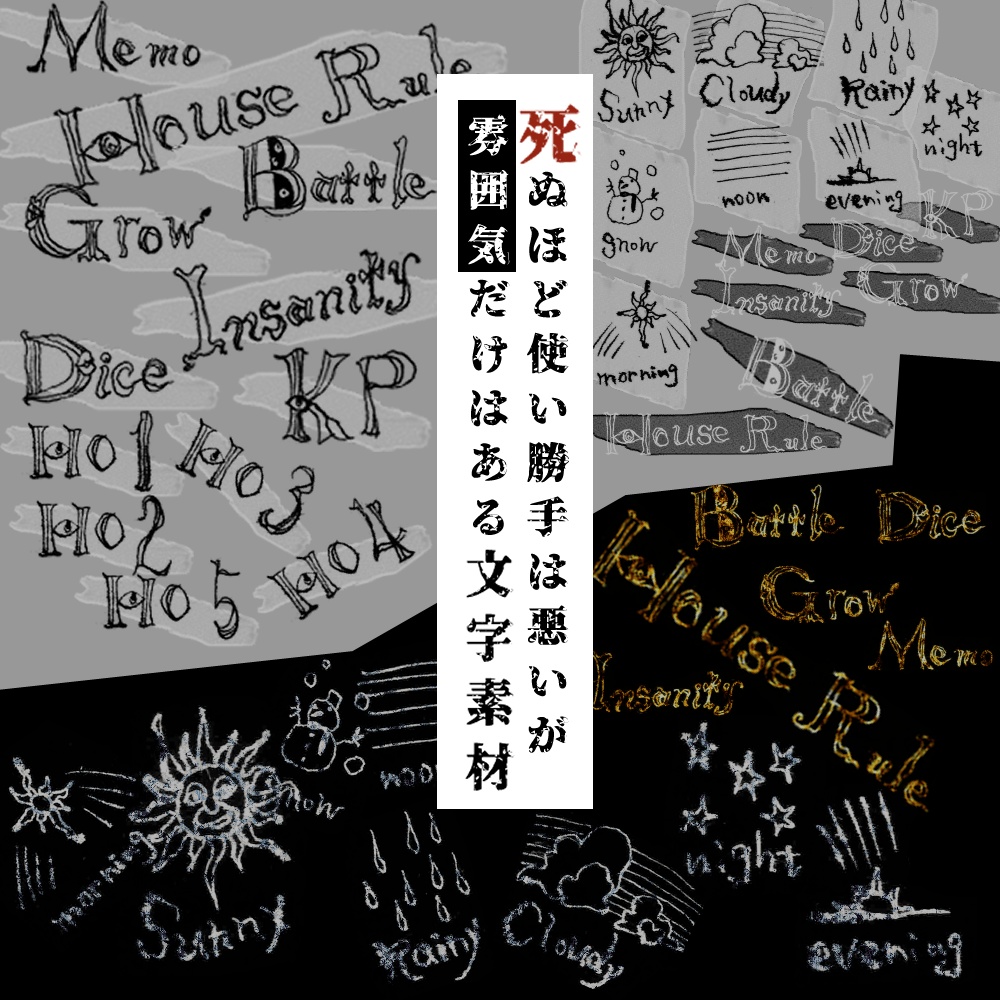 Memo
House Rule
Battle
Grow
Insanity
Dice
KP
Ho1
Ho3
Ho2
Ho4
Ho5
死ぬほど使い勝手は悪いが
雰囲気だけはある文字素材
Sunny
Cloudy
Rainy
night
snow
noon
evening
morning
KP
Dice
Memo
Grow
Insanity
Battle
House Rule
Battle
Dice
Grow
House Rule
Memo
Insanity
snow
noon
morning
Sunny
Rainy
Cloudy
night
evening